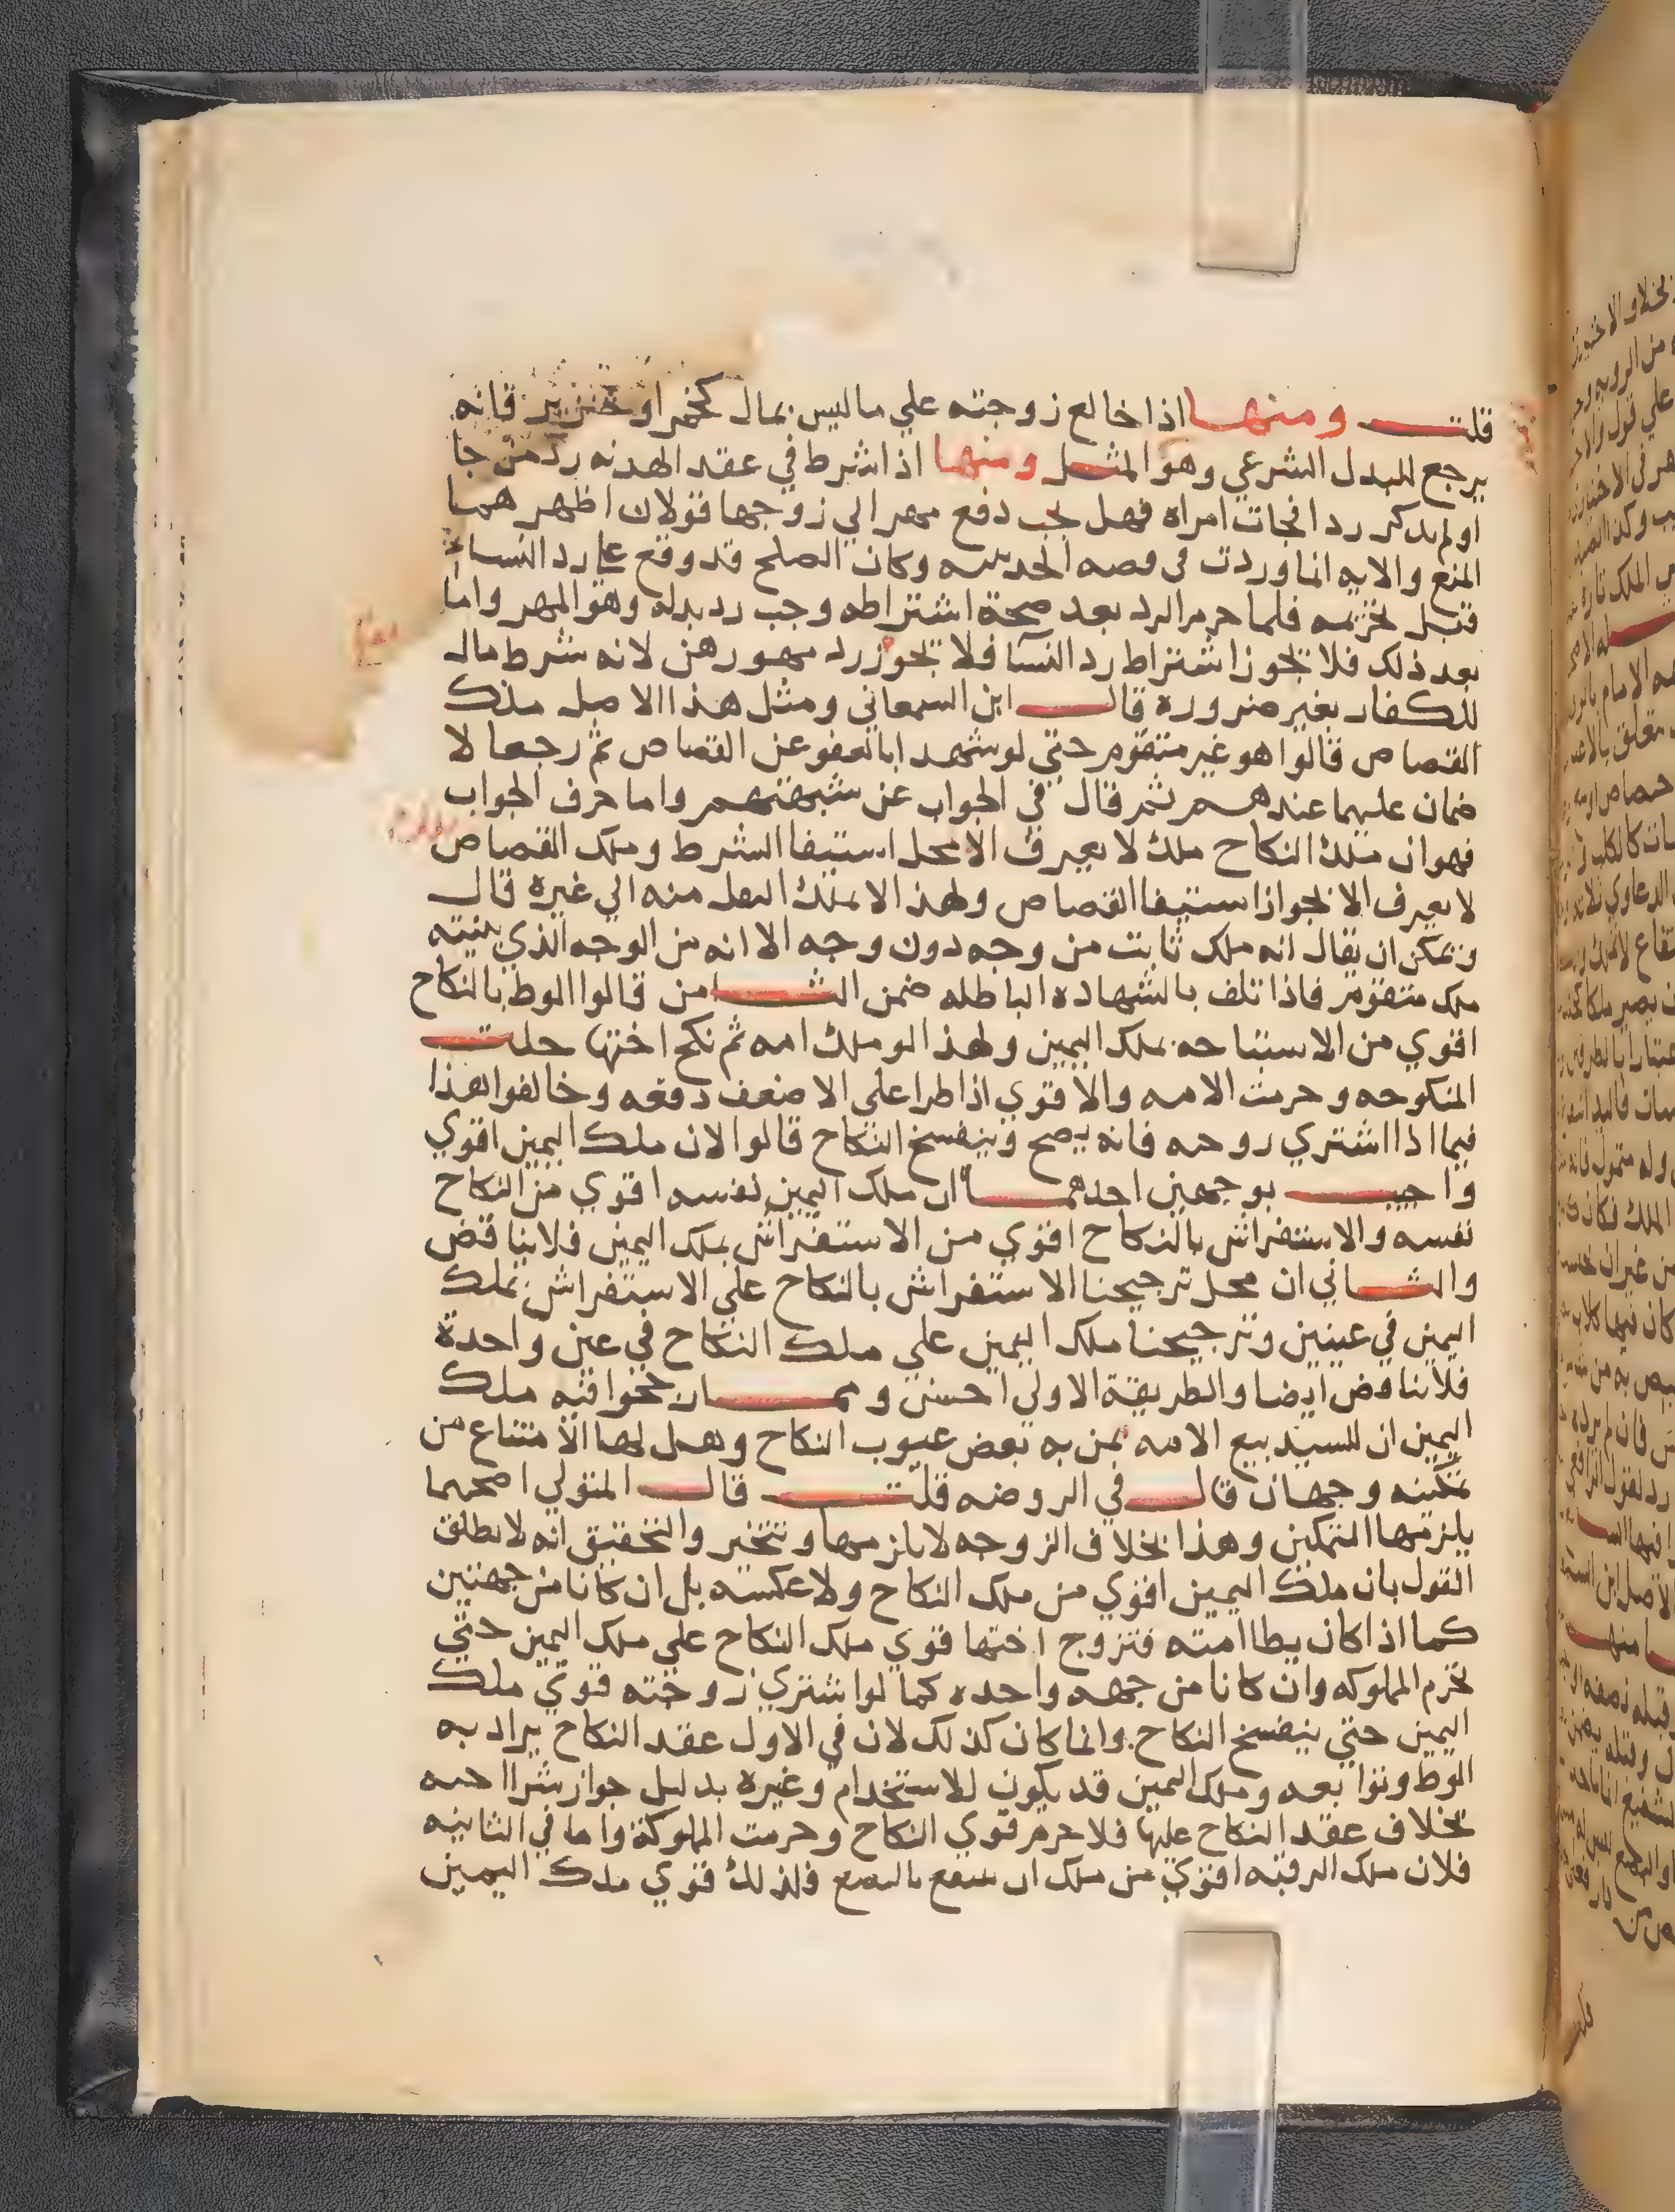 قلت ومنها اذا خالع زوجته علي ما ليس بمال كخمر او خنزير فانه
يرجع للبدل الشرعي وهو المثل ومنها اذا شرط في عقد الهدنه رد من جا
او لم يذكر ردا فجات امراه فهل يجب دفع مهر الي زوجها قولان اظهرهما
المنع والايه انما وردت في قصه الحديبيه وكان الصلح قد وقع علي رد النساء
قبل تحريمه فلما حرم الرد بعد صحة اشتراطه وجب رد بدله وهو المهر واما
بعد ذلك فلا يجوز اشتراط رد النسا فلا يجوز رد مهورهن لانه شرط مال
للكفار بغير ضرورة قال ابن السمعاني ومثل هذا الاصل ملك
القصاص قالوا هو غير متقوم حتي لو شهدا بالعفو عن القصاص ثم رجعا لا
ضمان عليهما عندهم ثم قال في الجواب عن شبهتهم واما حرف الجواب
فهو ان ملك النكاح ملك لا يعرف الا بحل استيفا الشرط وملك القصاص
لا يعرف الا بجواز استيفا القصاص ولهذا لا يملك النقل منه الي غيره قال
ويمكن ان يقال انه ملك ثابت من وجه دون وجه الا انه من الوجه الذي يثبته
ملك متقوم فاذا تلف بالشهاده الباطله ضمن الثامن قالوا الوط بالنكاح
اقوي من الاستباحه بملك اليمين ولهذا لو ملك امه ثم نكح اختها حلت
المنكوحه وحرمت الامه والاقوي اذا طرا علي الاضعف دفعه وخالفوا هذا
فيما اذا اشتري زوجه فانه يصح وينفسخ النكاح قالوا لان ملك اليمين اقوي
واجيب بوجهين احدهما ان ملك اليمين نفسه اقوي من النكاح
نفسه والاستفراش بالنكاح اقوي من الاستفراش بملك اليمين فلا يناقض
والثاني ان محل ترجيحنا الاستفراش بالنكاح علي الاستفراش بملك
اليمين في عينين وترجيحنا ملك اليمين علي ملك النكاح في عين واحدة
فلا يناقض ايضا والطريقة الاولي احسن ومما ملك
اليمين ان للسيد بيع الامه بمن به بعض عيوب النكاح وهل لها الامتناع من
تمكينه وجهان قال في الروضه قلت قال المتولي اصحهما
يلزمها التمكين وهذا بخلاف الزوجه لا يلزمها وتتخير والتحقيق انه لا يطلق
القول بان ملك اليمين اقوي من ملك النكاح ولا عكسه بل ان كانا من جهتين
كما اذا كان يطا امته فتزوج اختها قوي ملك النكاح علي ملك اليمين حتي
تحرم المملوكه وان كانا من جهه واحده كما لو اشتري زوجته قوي ملك
اليمين حتي ينفسخ النكاح وانما كان كذلك لان في الاول عقد النكاح يراد به
الوط وتوابعه وملك اليمين قد يكون للاستخدام وغيره بدليل جواز شرا اخته
بخلاف عقد النكاح عليها فلا جرم قوي النكاح وحرمت المملوكة واما في الثانيه
فلان ملك الرقبه اقوي من ملك ان ينتفع بالبضع فلذلك قوي ملك اليمين